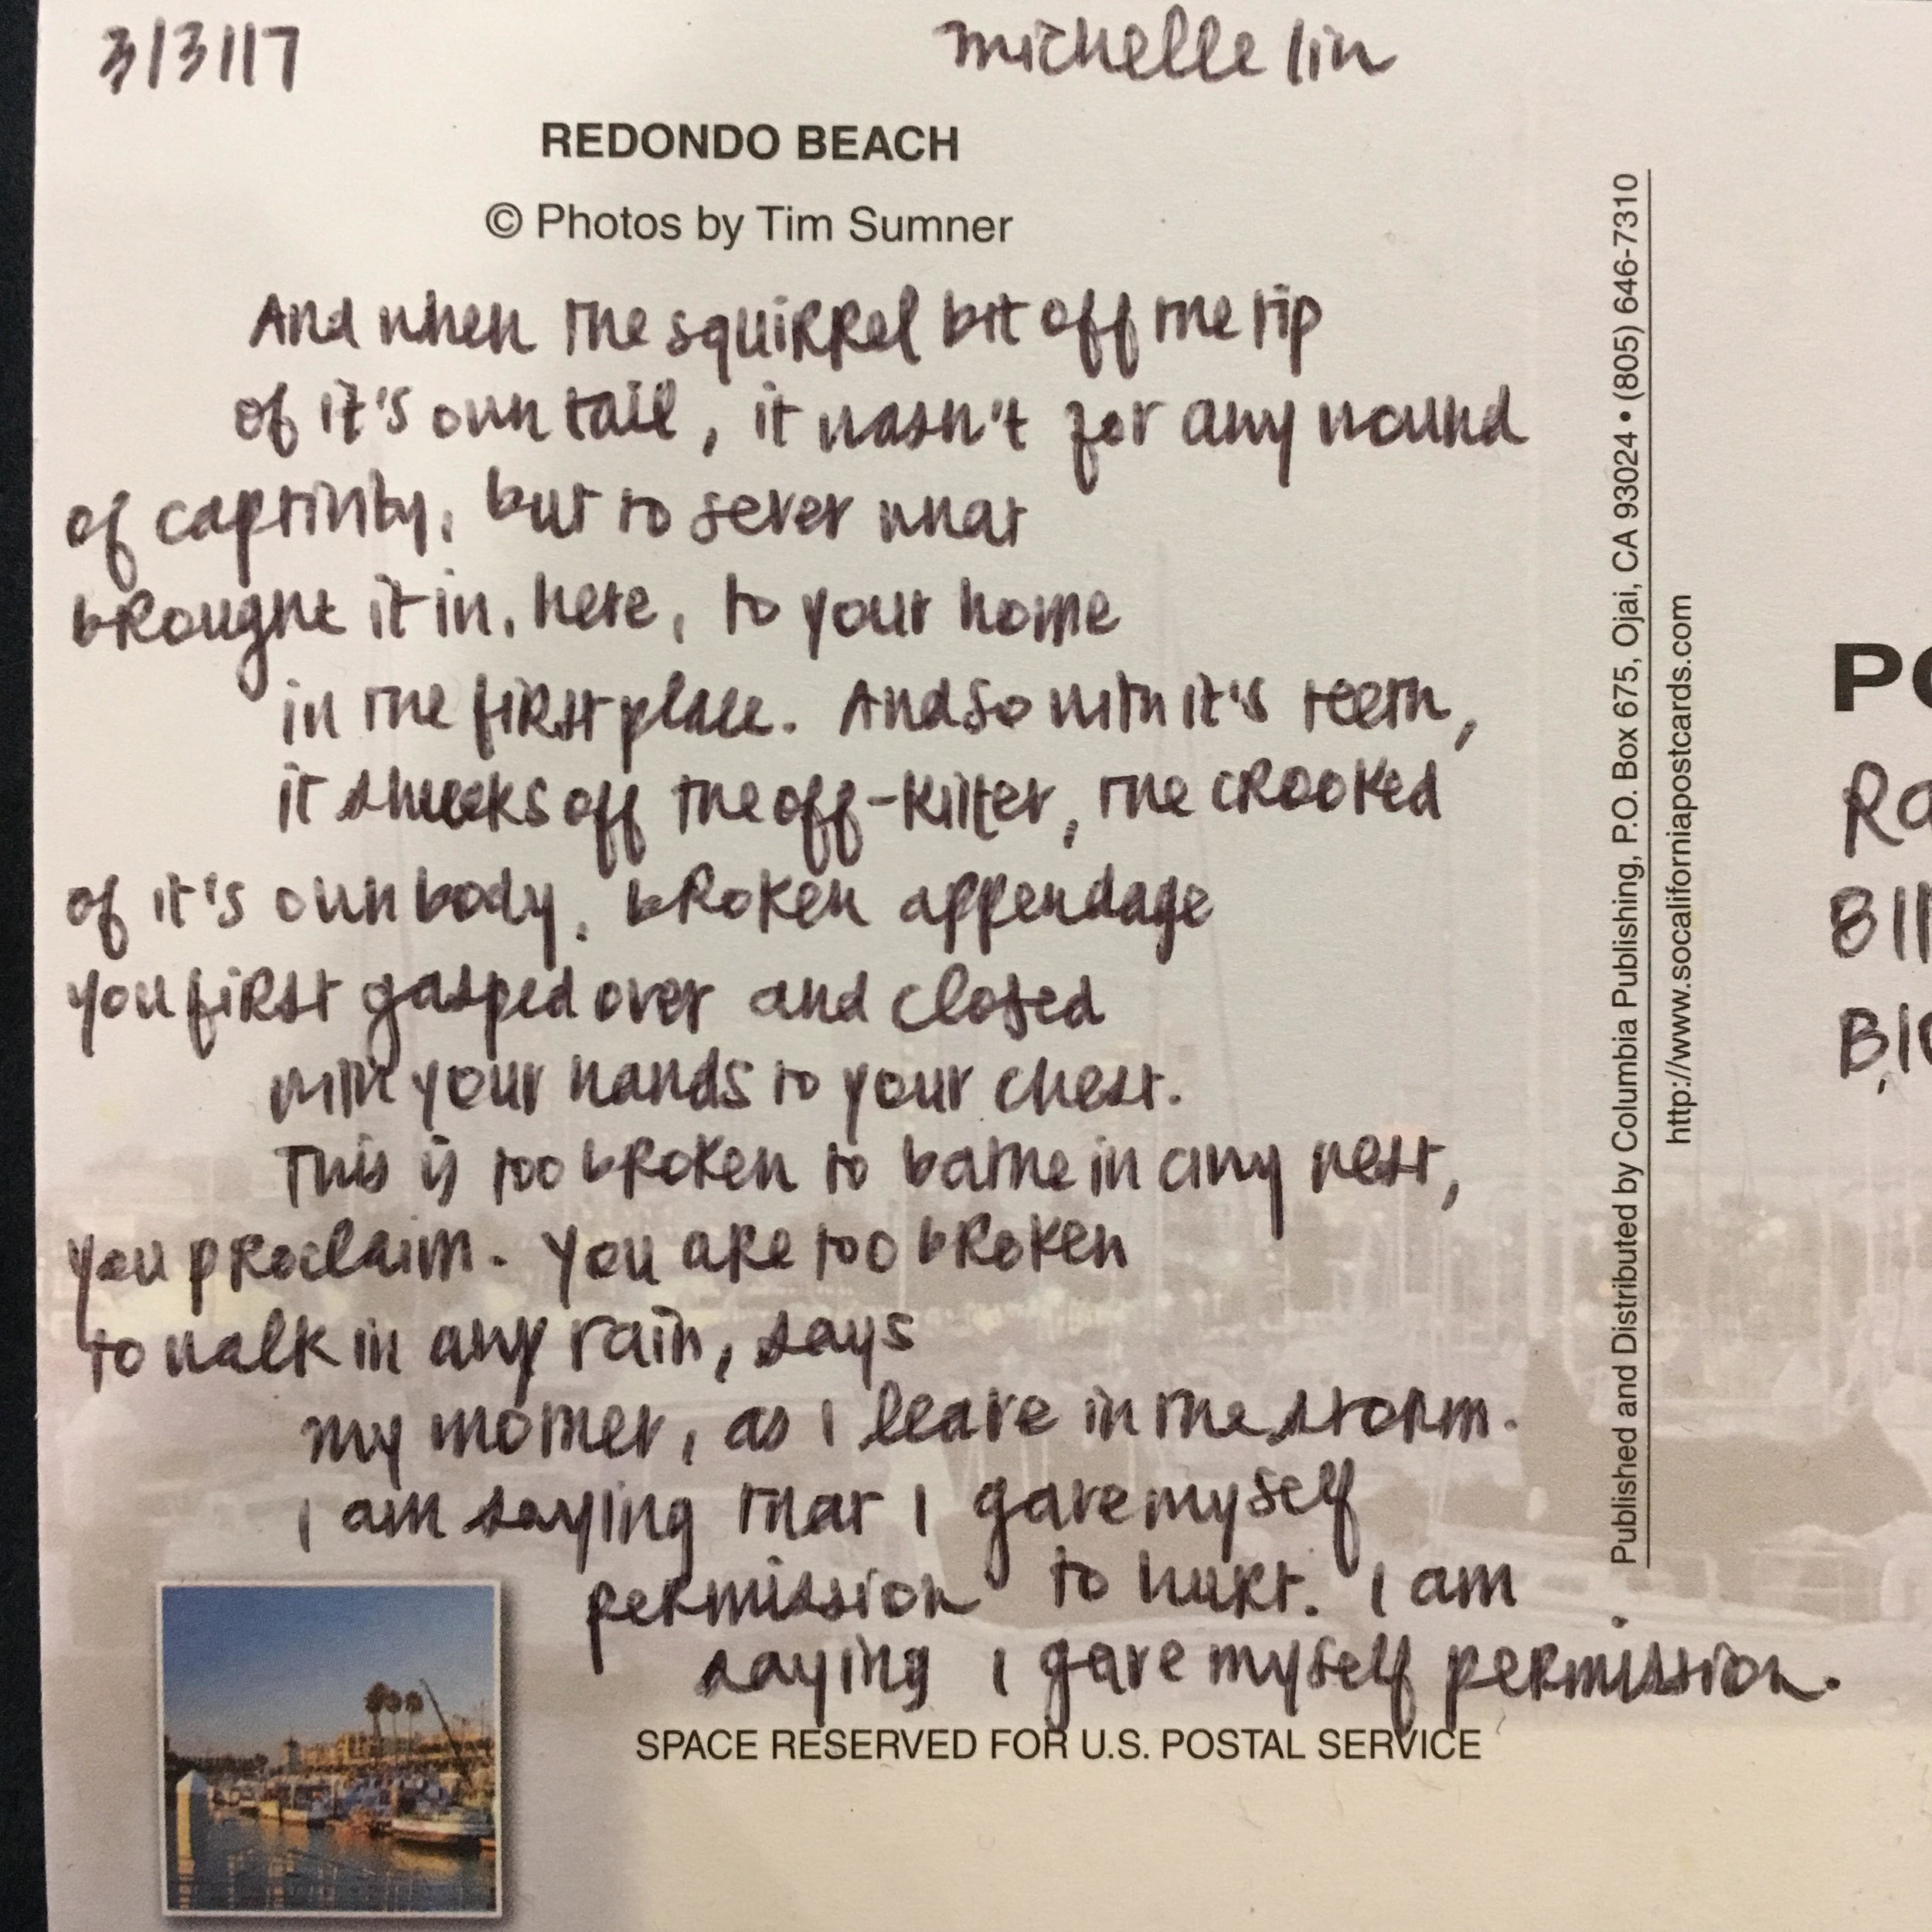 3/3/17
michelle lin
REDONDO BEACH
© Photos by Tim Sumner
And when the squirrel bit off the tip
of it's own tail, it wasn't for any wound
of captivity, but to sever what
brought it in, here, to your home
in the first place. And so with it's teeth,
it shucks off the off-kilter, the crooked
of it's own body, broken appendage
you first gasped over and closed
with your hands to your chest.
This is too broken to bathe in any nest,
you proclaim. You are too broken
to walk in any rain, says
my mother, as I leave in the storm.
I am saying that I gave myself
permission to hurt. I am
saying I gave myself permission.
SPACE RESERVED FOR U.S. POSTAL SERVICE
Published and Distributed by Columbia Publishing, P.O. Box 675, Ojai, CA 93024 • (805) 646-7310
http://www.socaliforniapostcards.com